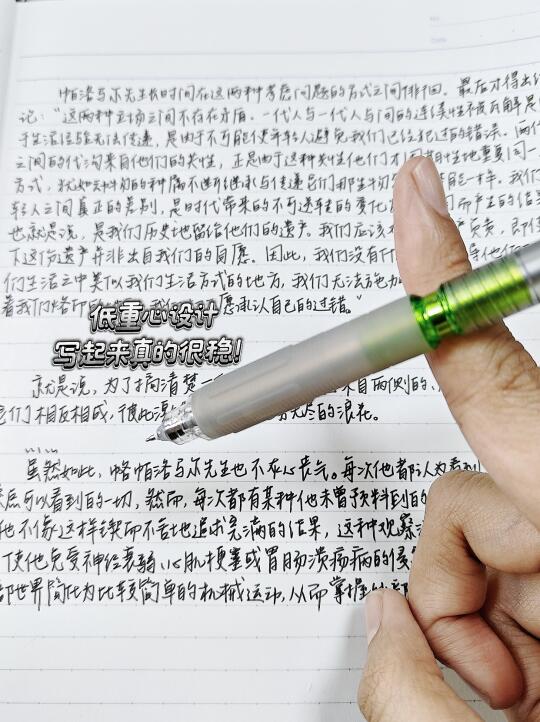 帕洛马尔先生长时间在这两种考虑问题的方式之间徘徊。最后才得出结
论："这两种立场之间不存在矛盾。一代人与一代人之间的连续性不被瓦解是由
于生活经验无法传递，是由于不可能使年轻人避免我们已经犯过的错误。两代
之间的代沟来自他们的共性，正是由于这种共性他们才周期性地重复同一
方式，犹如动物的种属不断继承与传递它们那生物 能一样。我们
轻人之间真正的差别，是时代带来的不可逆转的变化 而产生的结果
也就是说，是我们历史地留给他们的遗产。我们应该 负责，即使
下这份遗产并非出自我们的自愿。因此，我们没有什 导他们
们生活之中类似我们生活方式的地方，我们无法施加
着我们烙印的 愿承认自己的过错。"
低重心设计
写起来真的很稳!
就是说，为了搞清楚 来自两侧的、
它们相反相成，彼此 无尽的浪花。
虽然如此，帕洛马尔先生也不灰心丧气。每次他都认为看到
后可以看到的一切，然而，每次都有某种他未曾预料到的
他不像这样锲而不舍地追求完满的结果，这种观察
使他免受神经衰弱、心肌梗塞或胃肠溃疡病的侵
部世界简化为比较简单的机械运动，从而掌握